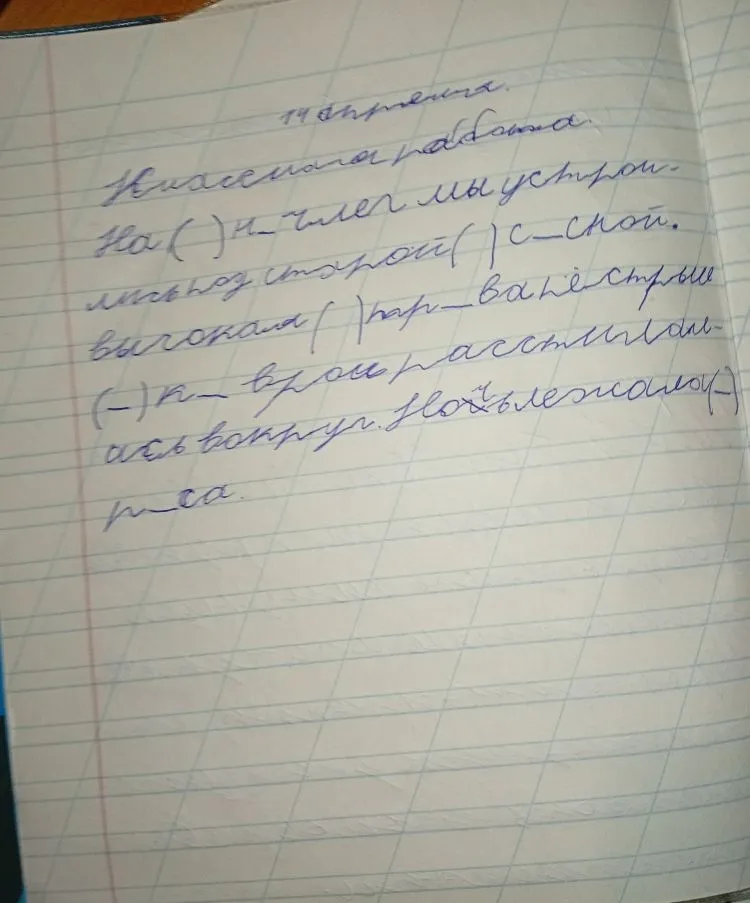 14 апреля.
Классная работа.
На ( ) н_члег мы устрои-
лись под старой ( ) с_сной.
высокая ( ) тр_ва пёстрым
(_) к_вром расстилал-
ась вокруг. Ночь лежала (_)
р_са.